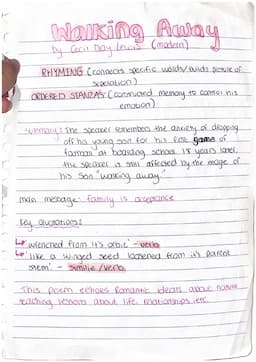 Walking Away
by Cecil Day Lewis (modern)
RHYMING (connects specific words/builds picture of
seperation)
ORDERED STANZAS: (constructed memory to control his
emotion)
Summary: The speaker remembers the anxiety of dropping
off his young son for his first game of
football at boarding school. 18 years later,
the speaker is still affected by the image of
his son "walking away."
main message: family is acceptance
Key Quotations:
'wrenched from it's orbit' - verb
'like a winged seed loosened from it's parent
stem' - similie/verb
This poem echoes Romantic ideals about nature
teaching lessons about life, relationships etc.